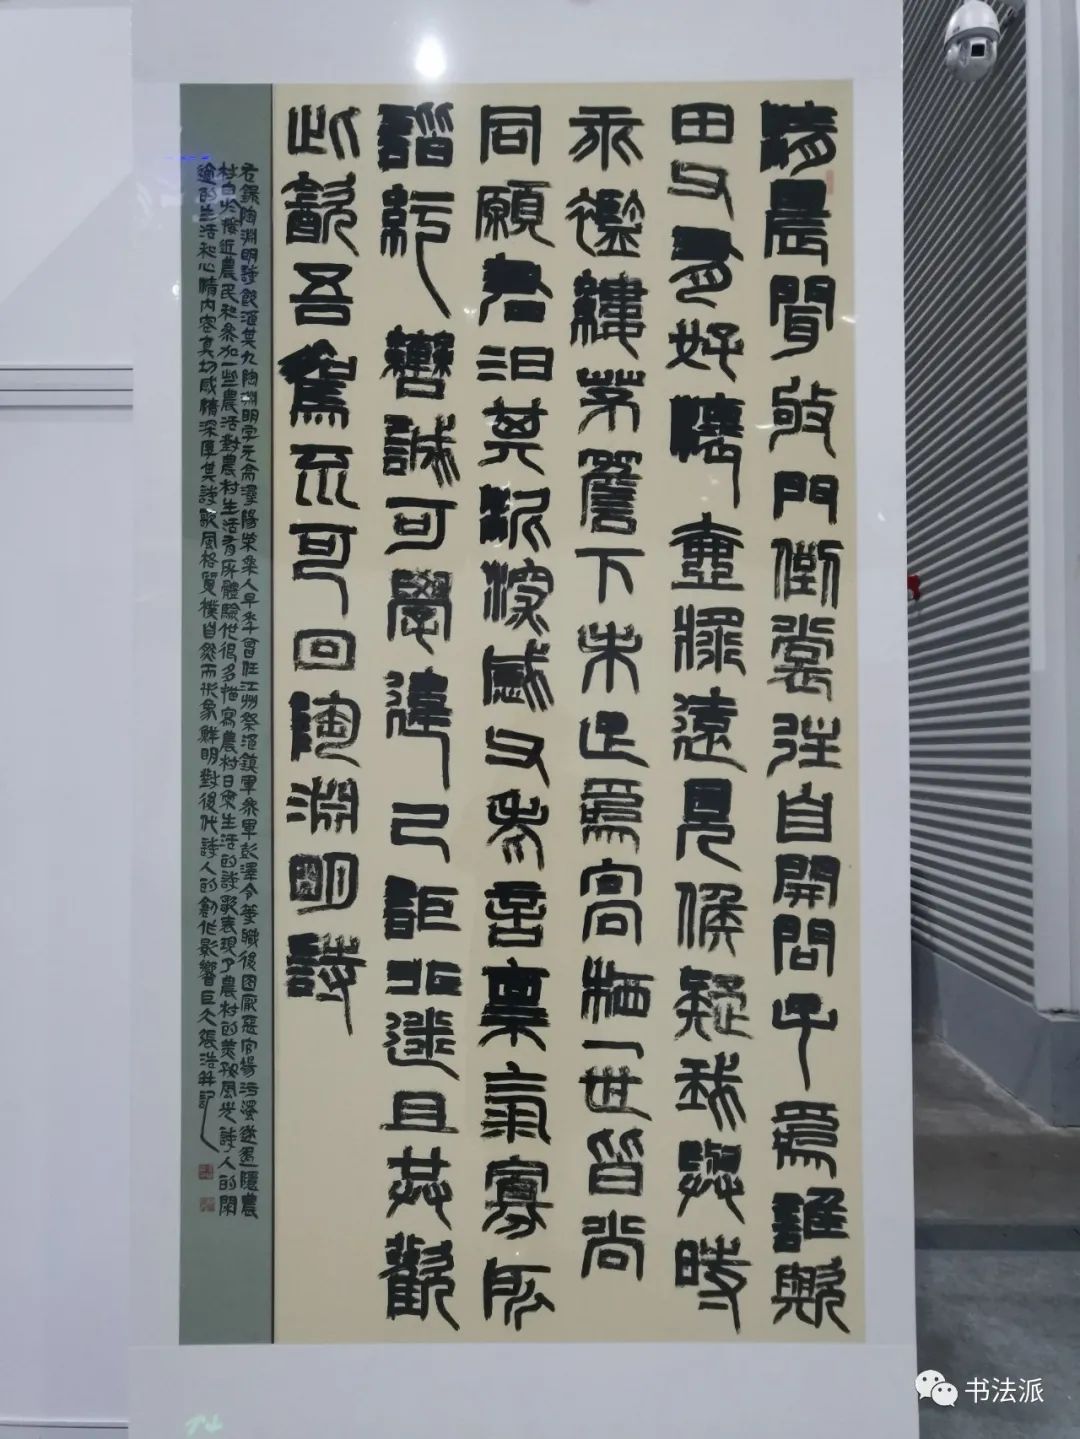 清晨聞敂門倒裳往自開問子爲誰歟
田父有好懷壺漿遠見候疑我與時
乖襤縷茅簷下未足爲高栖一世皆尚
同願君汩其泥深感父老言稟氣寡所
諧紆轡誠可學違己詎非迷且共歡
此飲吾駕不可回陶淵明詩
右錄陶淵明詩飲酒其九陶淵明字元亮潯陽柴桑人早年曾任江州祭酒鎮軍參軍彭澤令等職後因厭惡官場污濁遂退隱農
村由於接近農民和參加一些農活對農村生活有所體驗他很多描寫農村日常生活的詩歌表現了農村的美好風光詩人的閑
適的生活和心情內容真切感情深厚其詩歌風格質樸自然而形象鮮明對後代詩人的創作影響巨大張浩并記
书法派